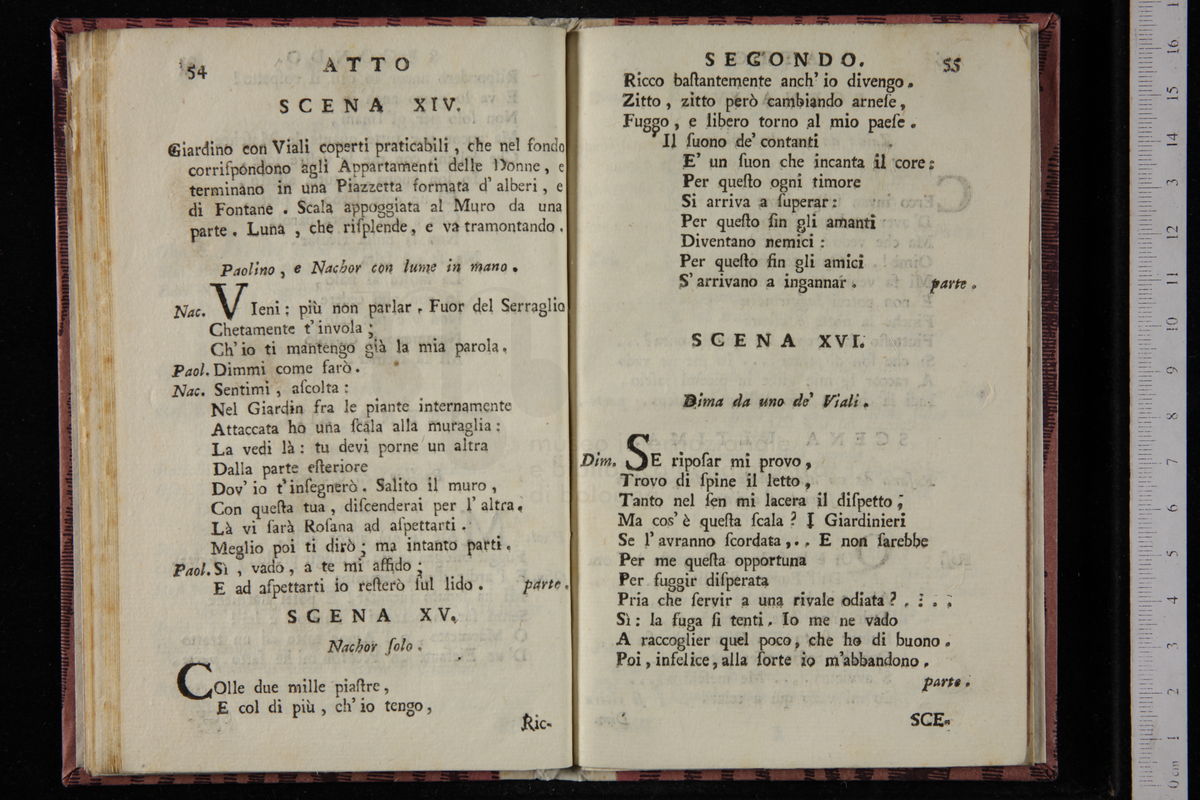 54
ATTO
SCENA XIV.
Giardino con Viali coperti praticabili, che nel fondo
corriſpondono agli Appartamenti delle Donne, e
terminano in una Piazzetta formata d' alberi, e
di Fontane. Scala appoggiata al Muro da una
parte. Luna, che riſplende, e va tramontando.
Paolino, e Nachor con lume in mano.
Nac. VIeni: più non parlar. Fuor del Serraglio
Chetamente t' invola;
Ch' io ti mantengo già la mia parola.
Paol. Dimmi come farò.
Nac. Sentimi, aſcolta:
Nel Giardin fra le piante internamente
Attaccata ho una ſcala alla muraglia:
La vedi là: tu devi porne un altra
Dalla parte eſteriore
Dov' io t' inſegnerò. Salito il muro,
Con queſta tua, diſcenderai per l' altra.
Là vi farà Roſana ad aſpettarti.
Meglio poi ti dirò; ma intanto parti.
Paol. Sì, vado, a te mi affido;
E ad aſpettarti io reſterò ſul lido. parte.
SCENA XV.
Nachor ſolo.
COlle due mille piaſtre,
E col di più, ch' io tengo,
Ric-
SECONDO.
55
Ricco baſtantemente anch' io divengo.
Zitto, zitto però cambiando arneſe,
Fuggo, e libero torno al mio paeſe.
Il ſuono de' contanti
E' un ſuon che incanta il core:
Per queſto ogni timore
Si arriva a ſuperar:
Per queſto fin gli amanti
Diventano nemici:
Per queſto fin gli amici
S' arrivano a ingannar. parte.
SCENA XVI.
Dima da uno de' Viali.
Dim. SE ripoſar mi provo,
Trovo di ſpine il letto,
Tanto nel ſen mi lacera il diſpetto;
Ma cos' è queſta ſcala? I Giardinieri
Se l' avranno ſcordata,... E non ſarebbe
Per me queſta opportuna
Per fuggir diſperata
Pria che ſervir a una rivale odiata?....
Sì: la fuga ſi tenti. Io me ne vado
A raccoglier quel poco, che ho di buono.
Poi, infelice, alla ſorte io m'abbandono.
parte.
SCE-